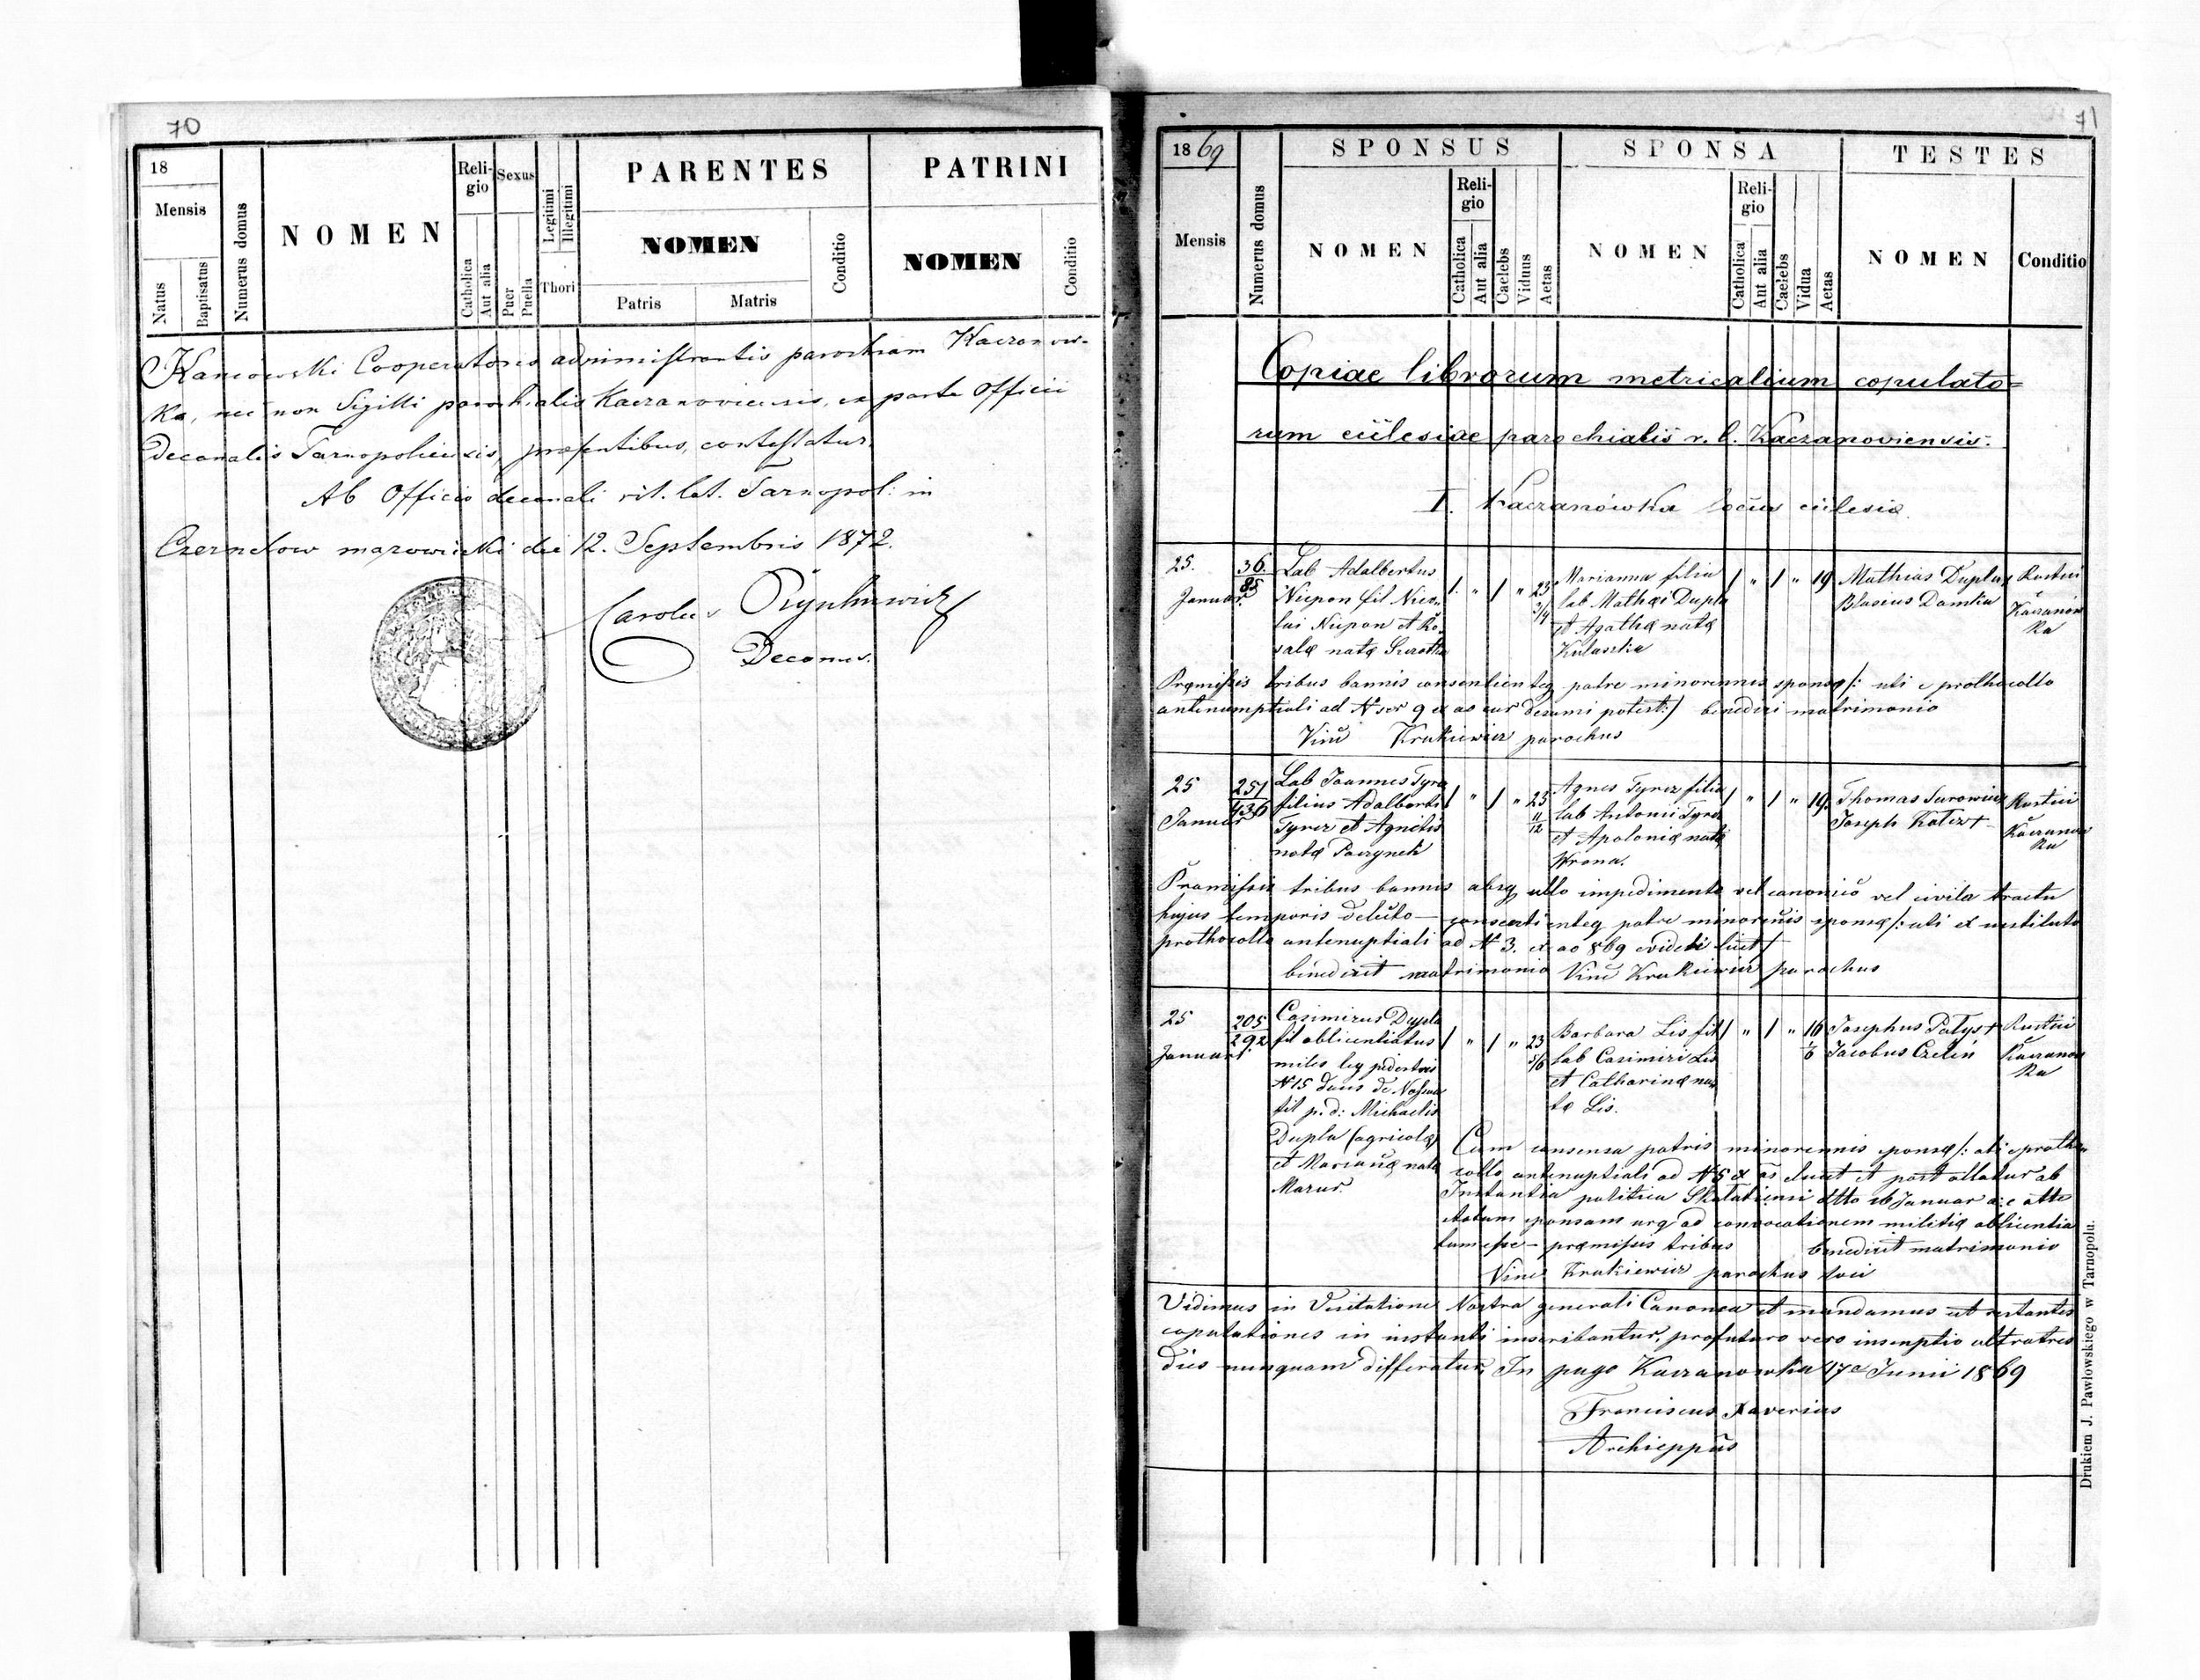 70
18
Mensis
Natus
Baptisatus
Numerus domus
NOMEN
Reli-
gio
Catholica
Aut alia
Sexus
Puer
Puella
Legitimi
Illegitimi
Thori
PARENTES
NOMEN
Patris
Matris
Conditio
PATRINI
NOMEN
Conditio
Kancowski Cooperatoris administrantis parochiam Kaczanow-
ka, nec non Sigilli parochialis Kaczanoviensis, ex parte Officii
Decanalis Tarnopoliensis, presentibus, contestatur.
Ab Officio decanali rit. lat. Tarnopol: in
Czernelow mazowiecki die 12. Septembris 1872.
Carolus
Decanus.
71
1869
Mensis
Numerus domus
SPONSUS
NOMEN
Reli-
gio
Catholica
Aut alia
Caelebs
Viduus
Aetas
SPONSA
NOMEN
Reli-
gio
Catholica
Aut alia
Caelebs
Vidua
Aetas
TESTES
NOMEN
Conditio
Copiae librorum metricalium copulato=
rum ecclesiae parochialis r. l. Kaczanoviensis.
I. Kaczanówka locus ecclesiæ
25. Januar.
36.
85
Lab Adalbertus
Niepon fil Nico-
lai Niepon et Ro-
salæ natæ
1. " 1 " 23 3/4
Marianna filia
lab Mathæi Dupla
et Agathæ natæ
1 " 1 " 19
Mathias Dupla
Blasius Damlia
Rustici
Kaczanów
ka
Præmissis tribus bannis consentienteq patre minorennis sponsæ /: uti e prothocollo
antenumptiali ad N ser 9 desumi potest :/ matrimonio
Vinc Krukiewicz parochus
25
Januar
251
436
Lab Joannes Tyrcz
filius Adalberti
Tyrcz et Agnetis
natæ
1 " 1 " 23 11/12
Agnes Tyrcz filia
lab Antonii Tyrcz
et Apoloniæ natæ
Wrona.
1 " 1 " 19
Thomas Surowiec
Joseph
Rustici
Kaczanow
ka
Præmissis tribus bannis absq ullo impedimento vel canonico vel civile tractu
hujus temporis detecto — consentienteq patre minorennis sponsæ /: uti ex
prothocollo antenuptiali ad N 3. ex ao 869 licet /
benedixit matrimonio Vinc Krukiewicz parochus
25
Januar.
205
292
Casimirus Dupla
fil oblicentiatus
miles leg pedestris
N 15 ducis de Nassau
fil p. d: Michaelis
Dupla (agricolæ)
et Mariannæ natæ
Mazur.
1 " 1 " 23 5/6
Barbara Lis fil
lab Casimiri Lis
et Catharinæ na-
tæ Lis.
1 " 1 " 16 1/6
Josephus
Jacobus
Rustici
Kaczanow
ka
Cum consensu patris minorennis sponsæ /: uti e protho
collo antenuptiali ad N 5 et post allatur ab
Instantia politica dtto 16 Januar
sponsum usq ad convocationem militiæ oblicentia
tum esse — præmissis tribus benedixit matrimonio
Vinc Krukiewicz parochus loci
Vidimus in Visitatione Nostra generali Canonica et mandamus ut restantes
copulationes in instanti inscribantur, profuturo vero inscriptio ultra tres
dies nunquam differatur. In pago Kaczanowka 17a Junii 1869
Franciscus Xaverius
Archieppus
Drukiem J. Pawłowskiego w Tarnopolu.